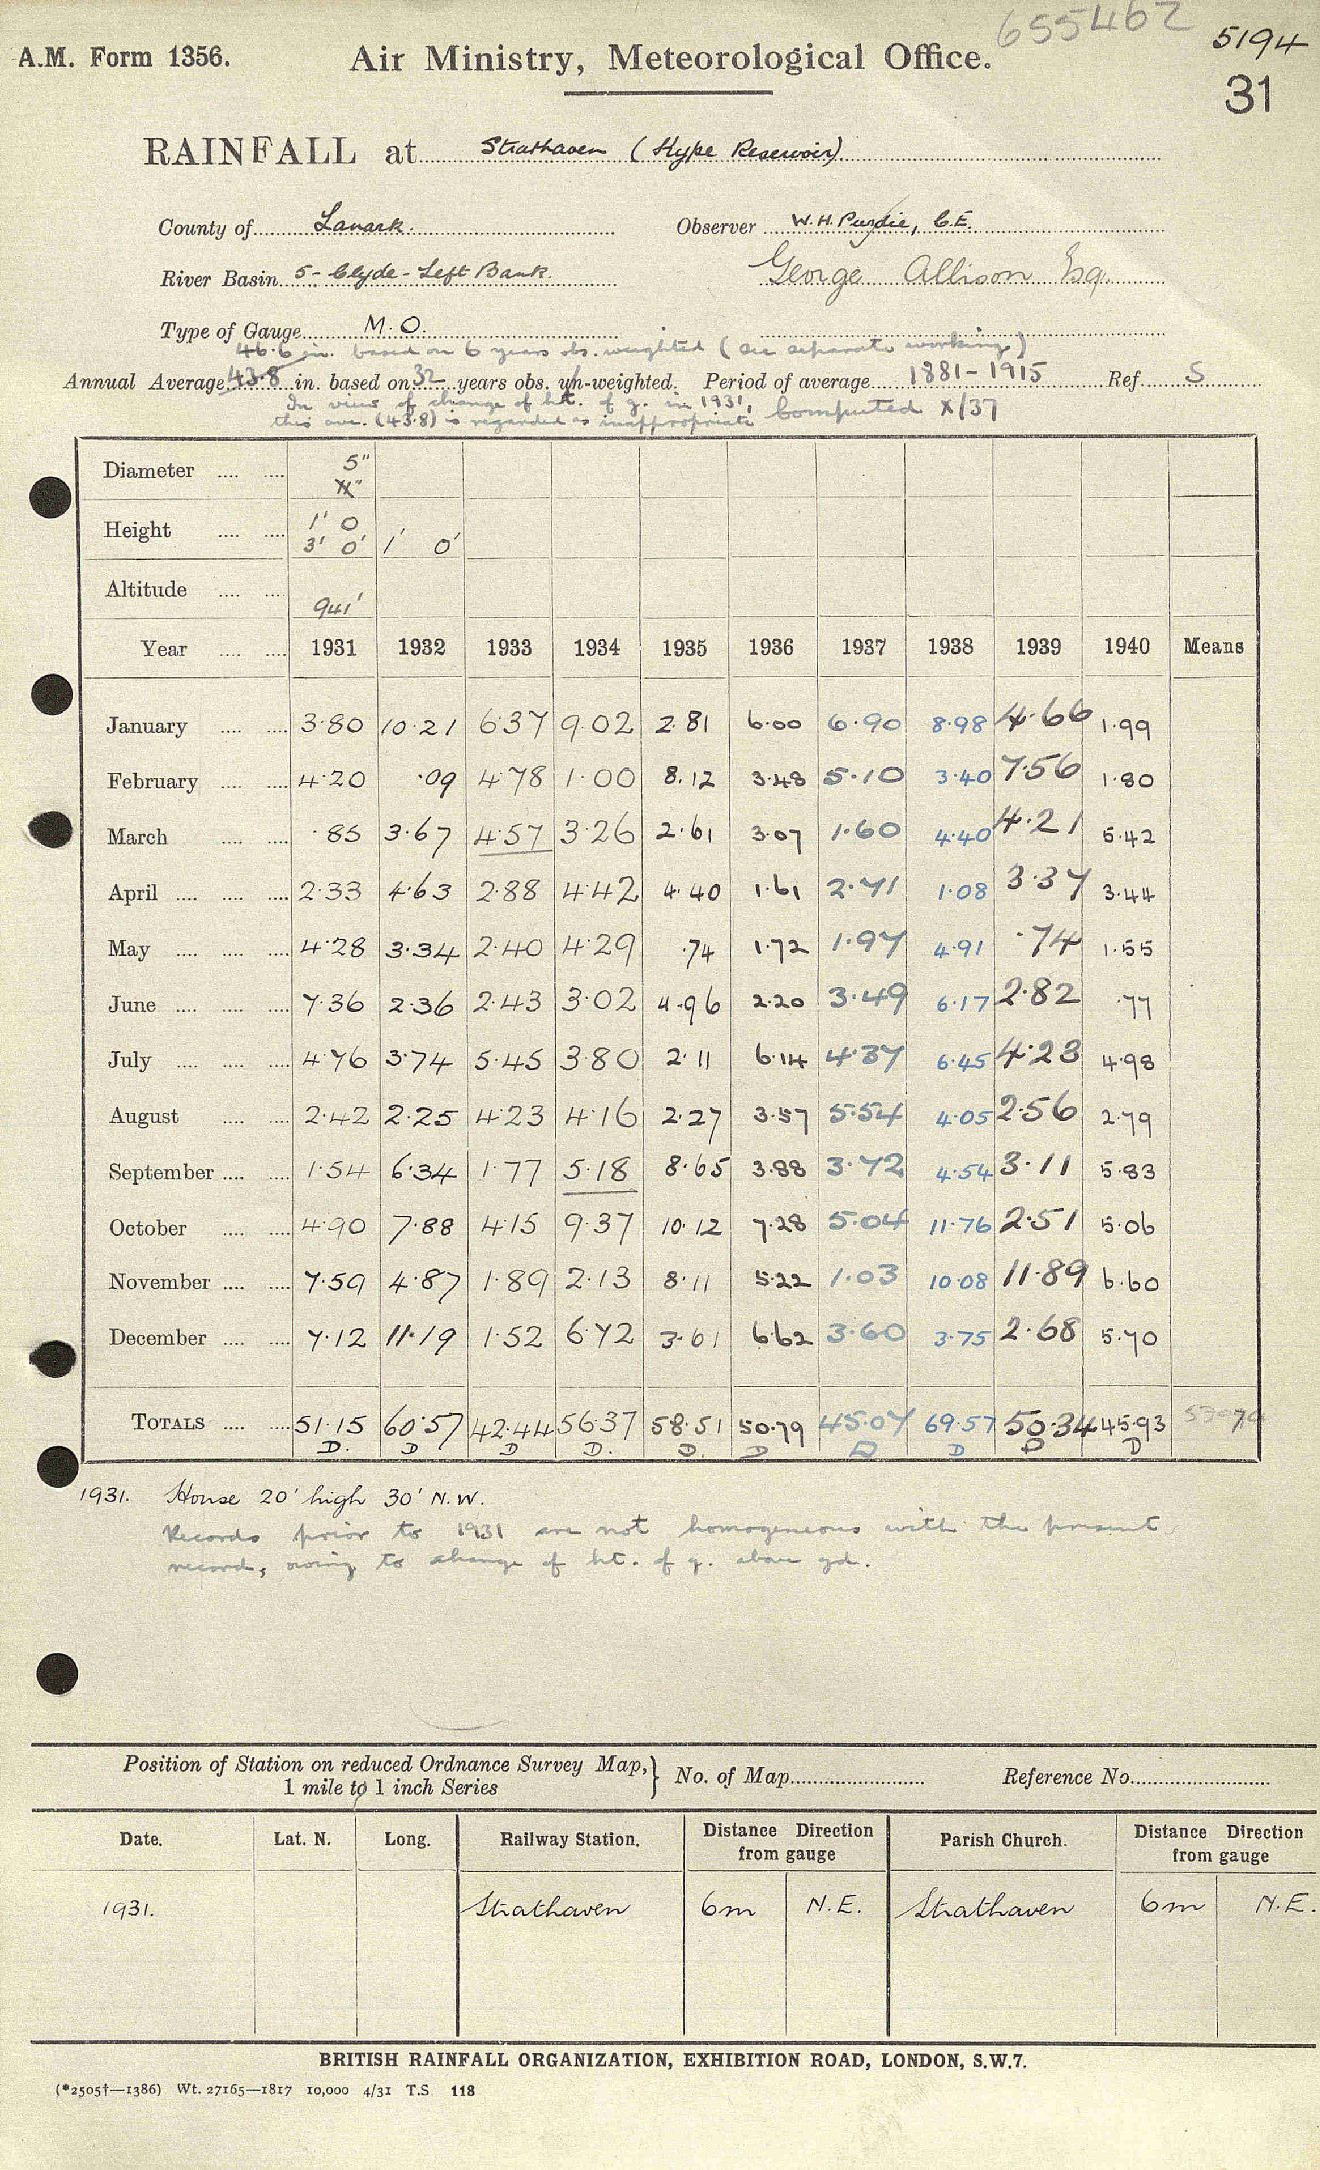 655462
5194
A.M. Form 1356. Air Ministry, Meteorological Office.
31
RAINFALL at Strathaven (Kype Reservoir)
County of Lanark. Observer W.H. Purdie, C.E.
River Basin 5 - Clyde - Left Bank. George Allison Esq.
Type of Gauge M.O.
46.6 in. based on 6 years obs. weighted (see separate working)
Annual Average 43.8 in. based on 32 years obs. un-weighted. Period of average 1881-1915 Ref. S
In view of change of ht. of g. in 1931, Computed X/37
this ave. (43.8) is regarded as inappropriate
Diameter 5"
Height 1' 0
3' 0' 1' 0'
Altitude 941'
Year 1931 1932 1933 1934 1935 1936 1937 1938 1939 1940 Means
January 3·80 10·21 6·37 9·02 2·81 6·00 6·90 8·98 4·66 1·99
February 4·20 ·09 4·78 1·00 8·12 3·48 5·10 3·40 7·56 1·80
March ·85 3·67 4·57 3·26 2·61 3·07 1·60 4·40 4·21 5·42
April 2·33 4·63 2·88 4·42 4·40 1·61 2·71 1·08 3·37 3·44
May 4·28 3·34 2·40 4·29 ·74 1·72 1·97 4·91 ·74 1·55
June 7·36 2·36 2·43 3·02 4·96 2·20 3·49 6·17 2·82 ·77
July 4·76 3·74 5·45 3·80 2·11 6·14 4·37 6·45 4·23 4·98
August 2·42 2·25 4·23 4·16 2·27 3·57 5·54 4·05 2·56 2·79
September 1·54 6·34 1·77 5·18 8·65 3·88 3·72 4·54 3·11 5·83
October 4·90 7·88 4·15 9·37 10·12 7·28 5·04 11·76 2·51 5·06
November 7·59 4·87 1·89 2·13 8·11 5·22 1·03 10·08 11·89 6·60
December 7·12 11·19 1·52 6·72 3·61 6·62 3·60 3·75 2·68 5·70
TOTALS 51·15 60·57 42·44 56·37 58·51 50·79 45·07 69·57 50·34 45·93
D. D D D. D. D D D D D
1931. House 20' high 30' N.W.
Records prior to 1931 are not homogeneous with the present
record, owing to change of ht. of g. above gd.
Position of Station on reduced Ordnance Survey Map, } No. of Map Reference No.
1 mile to 1 inch Series
Date. Lat. N. Long. Railway Station. Distance Direction from gauge Parish Church. Distance Direction from gauge
1931. Strathaven 6m N.E. Strathaven 6m N.E.
BRITISH RAINFALL ORGANIZATION, EXHIBITION ROAD, LONDON, S.W.7.
(*2505†—1386) Wt. 27165—1817 10,000 4/31 T.S. 118